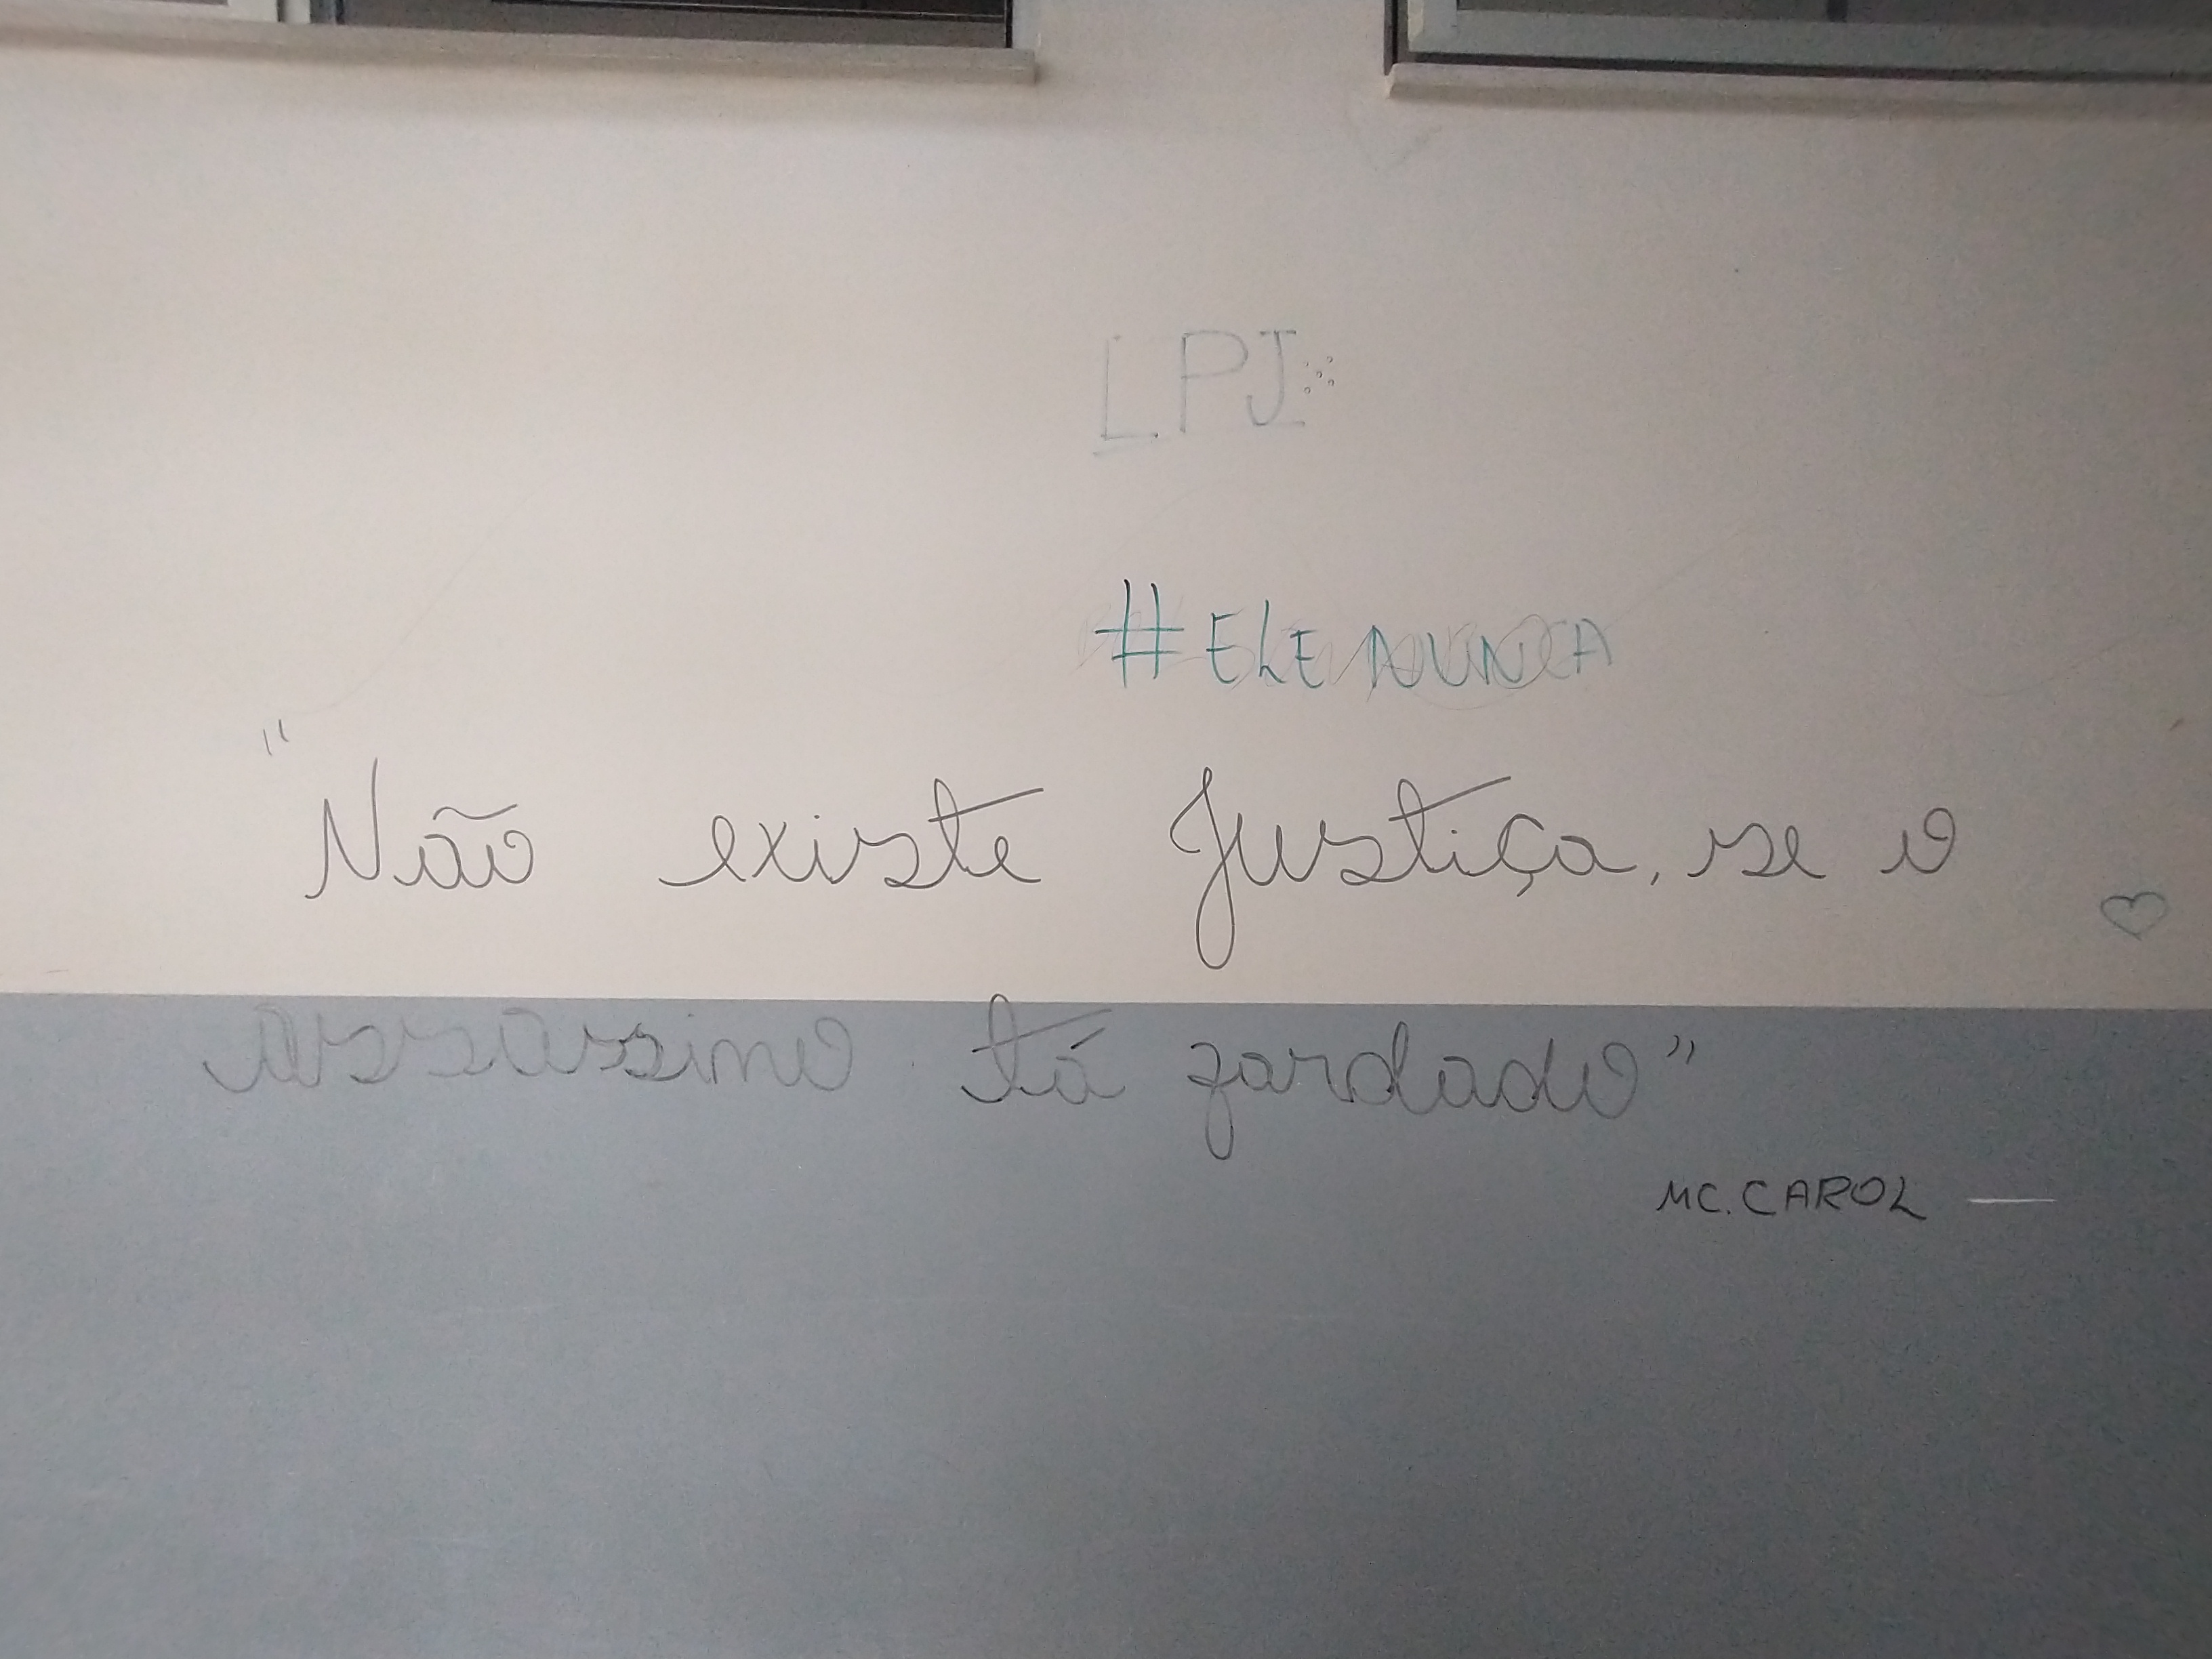 LPJ
#ELE NUNCA
"Não existe Justiça, se o
assassino tá fardado"
MC. CAROL